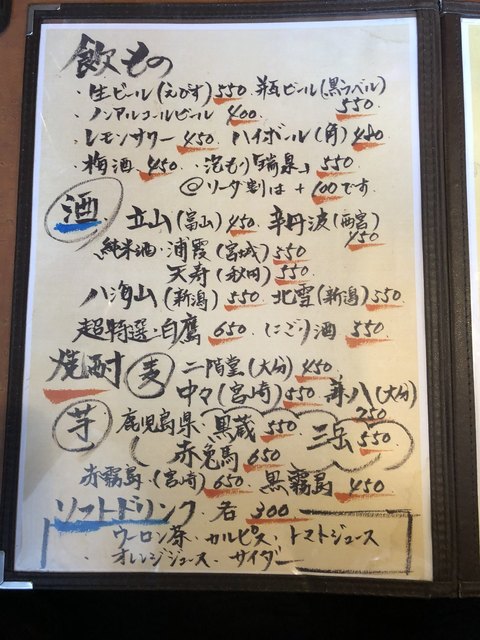 飲もの
・生ビール(えびす)550 瓶ビール(黒ラベル)
550
・ノンアルコールビール 400
・レモンサワー 450 ハイボール(角) 450
・梅酒 450 ・泡もり「瑞泉」 550
@ソーダ割は +100です。
酒 立山(富山)450 辛丹波(西宮)
450
純米酒・浦霞(宮城)550
天寿(秋田)550
八海山(新潟)550 北雪(新潟)550
超特選・白鷹 650 にごり酒 550
焼酎 麦 二階堂(大分)450
中々(宮崎)550 兼八(大分)
750
芋 鹿児島県・黒蔵 550 三岳 550
赤兎馬 650
赤霧島(宮崎)650 黒霧島 450
ソフトドリンク 各 300
・ウーロン茶・カルピス・トマトジュース
・オレンジジュース・サイダー